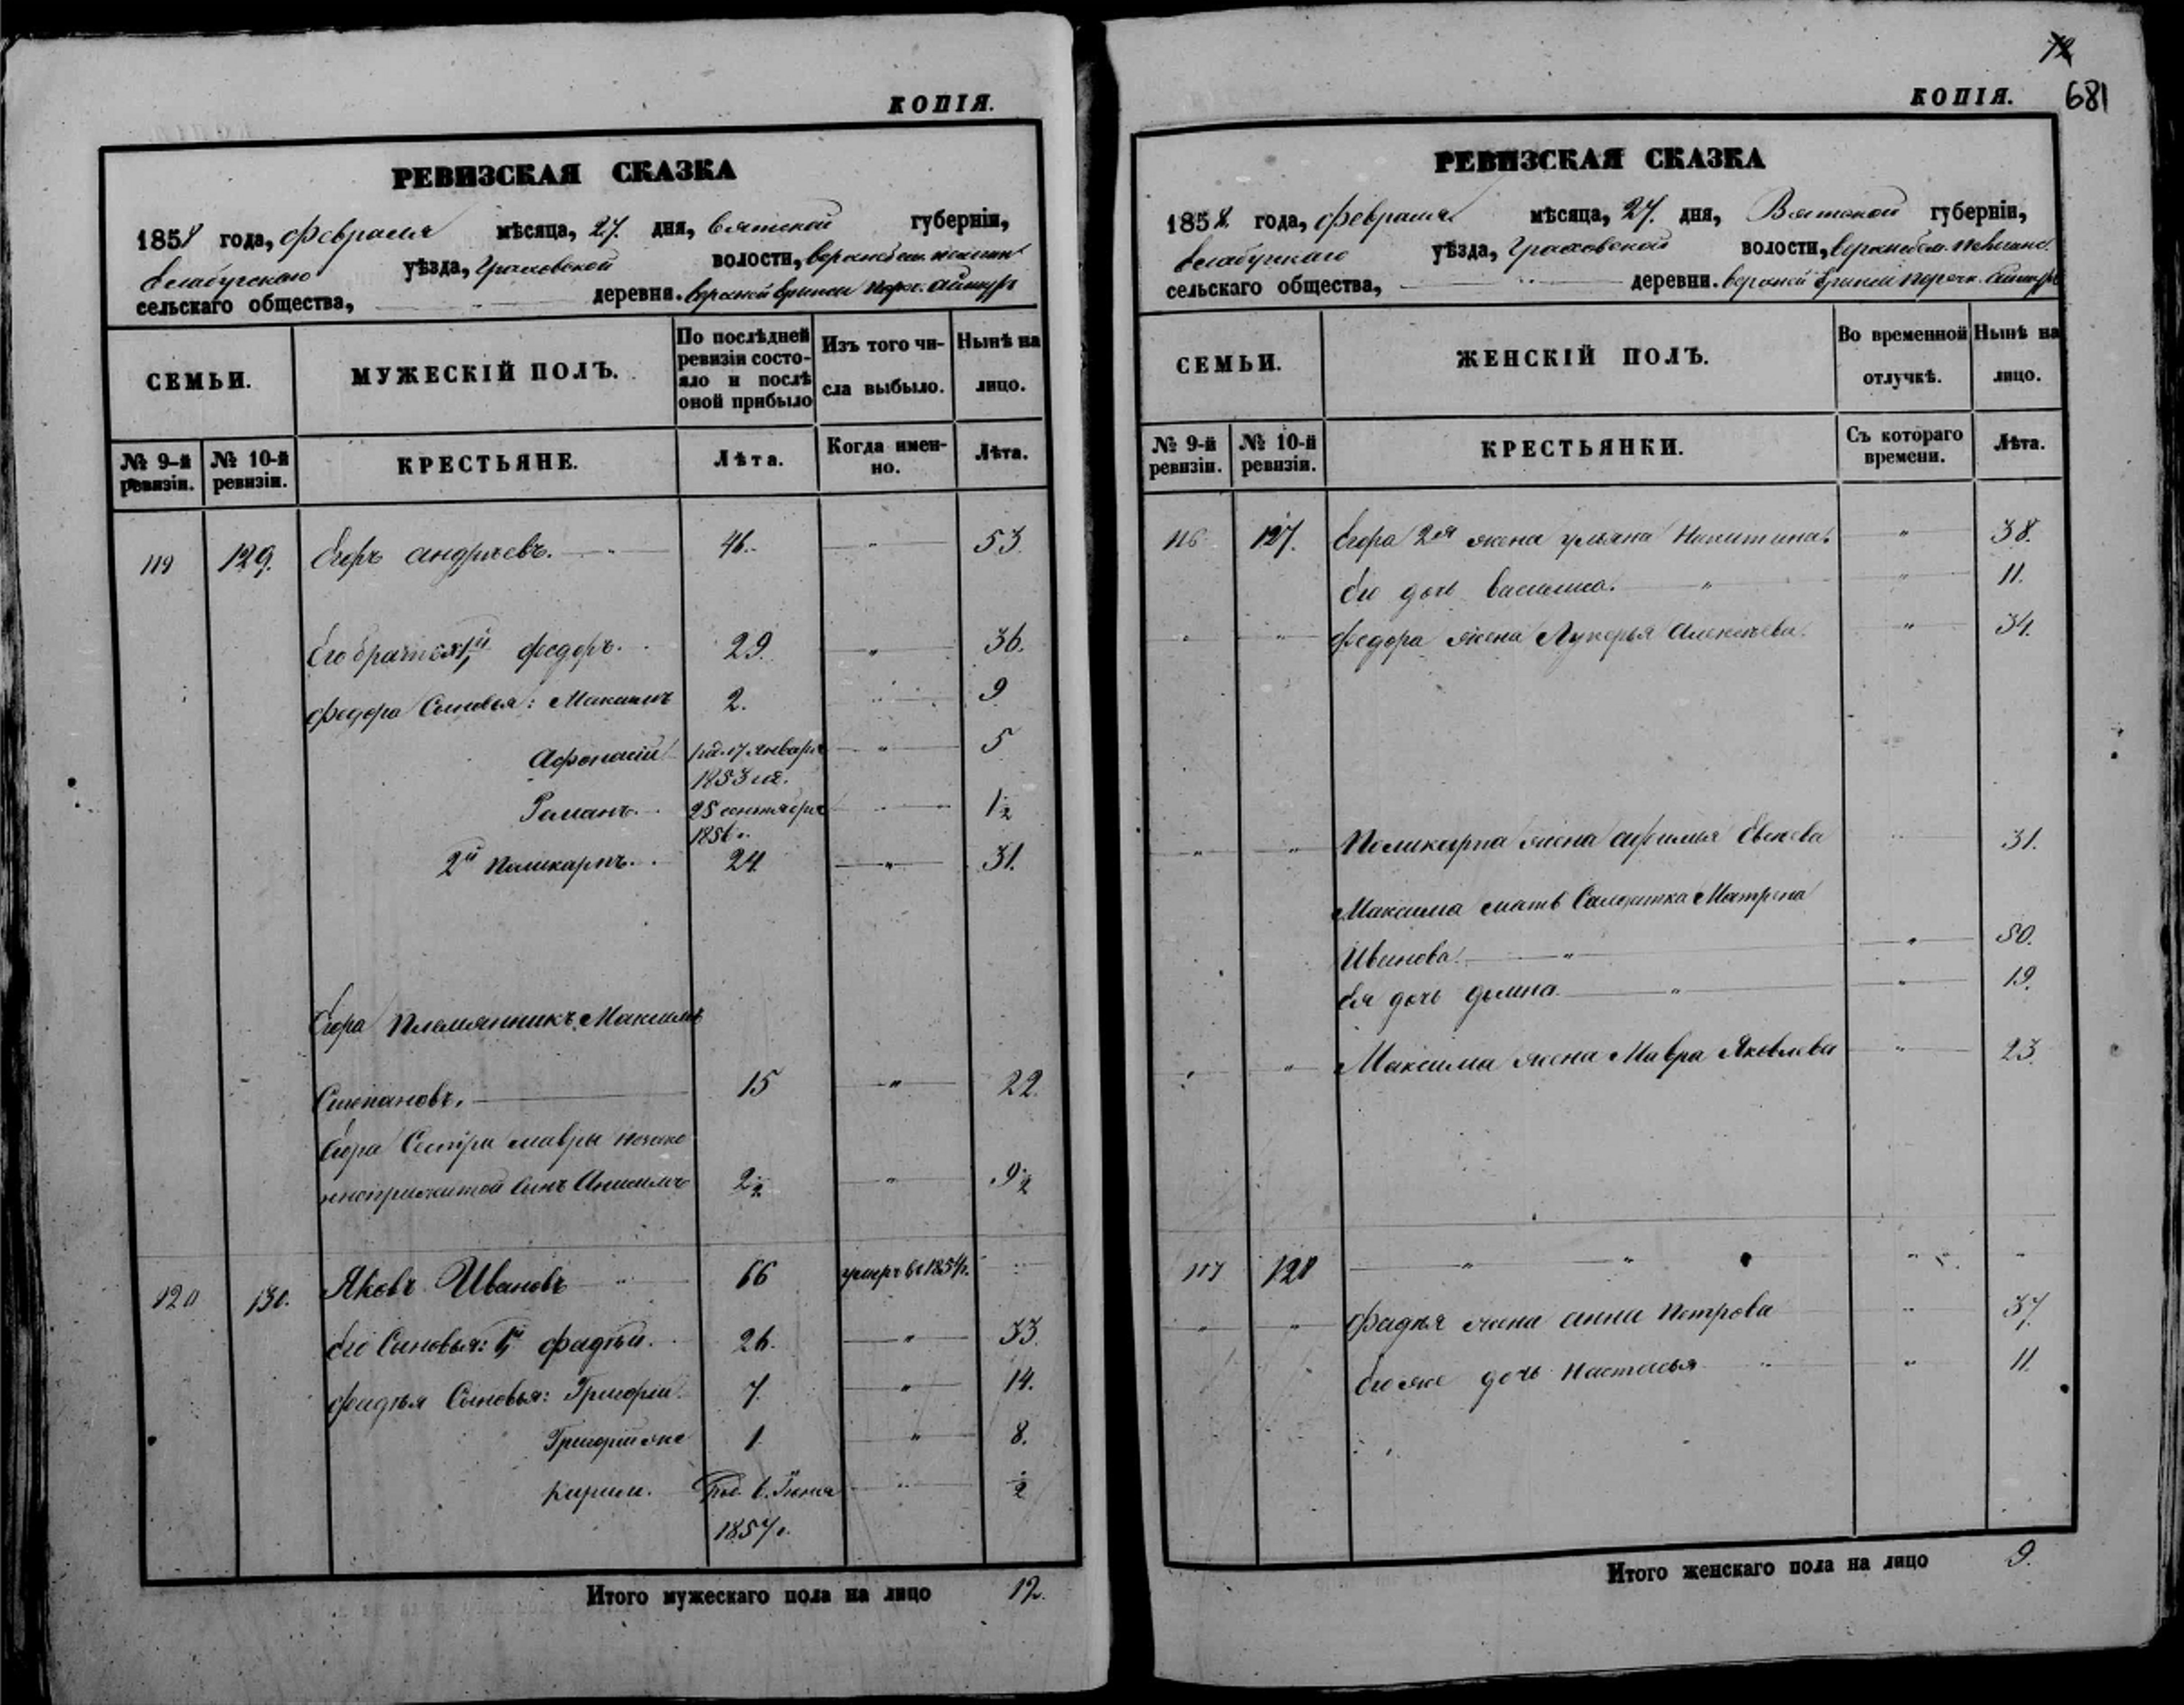 КОПІЯ.
РЕВИЗСКАЯ СКАЗКА
1858 года, февраля мѣсяца, 27. дня, Вятской губерніи,
Елабугскаго уѣзда, Граховской волости,
сельскаго общества, деревни.
СЕМЬИ.
МУЖЕСКІЙ ПОЛЪ.
По послѣдней ревизіи состояло и послѣ оной прибыло
Изъ того числа выбыло.
Нынѣ на лицо.
№ 9-й ревизіи.
№ 10-й ревизіи.
КРЕСТЬЯНЕ.
Лѣта.
Когда именно.
Лѣта.
119 129. Егоръ андреевъ. 46. " 53
Его братья 1й федоръ. 29. " 36.
федора Сыновья: Максимъ 2. " 9
Афонасій род. 17 января " 5
1853 го.
Романъ. 25 сентября " 1½
1856 г.
2й Поликарпъ. 24. " 31.
Егора Племянникъ Максимъ
Степановъ. 15 " 22.
Егора Сестры мавры незако
ннорижитой Сынъ Анисимъ 2½ " 9½
120 130. Яковъ Ивановъ " 66 умеръ въ 1854 г. "
Его Сыновья: 1й фадѣй. 26. " 33.
фадѣя Сыновья: Григорій. 7. " 14.
Григорій же 1. " 8.
Кирилъ. Род. 6. Іюня " ½
1857 г.
Итого мужескаго пола на лицо 12.
72
681
КОПІЯ.
РЕВИЗСКАЯ СКАЗКА
1858 года, февраля мѣсяца, 27. дня, Вятской губерніи,
Елабугскаго уѣзда, Граховской волости,
сельскаго общества, деревни.
СЕМЬИ.
ЖЕНСКІЙ ПОЛЪ.
Во временной отлучкѣ.
Нынѣ на лицо.
№ 9-й ревизіи.
№ 10-й ревизіи.
КРЕСТЬЯНКИ.
Съ котораго времени.
Лѣта.
116 127. Егора 2я жена ульяна Никитина. " 38.
Его дочь Василиса. " " 11.
" " федора жена Лукерья Алексеева. " 34.
" " Поликарпа жена афимья " 31.
Максима мать Солдатка Матрена
Иванова. " " 50.
Ея дочь домна. " " 19.
" " Максима жена Мавра Яковлева " 23.
117 128 " " " "
" " фадѣя жена анна Петрова " 37.
Его же дочь Настасья " " 11.
Итого женскаго пола на лицо 9.